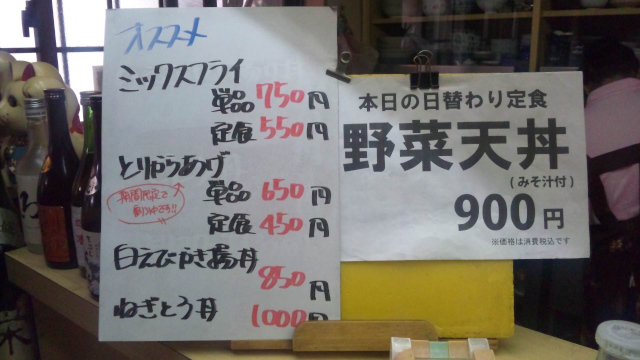 オススメ
ミックスフライ
単品 750円
定食 550円
とりからあげ
単品 650円
定食 450円
期間限定で
白えびかき揚丼
850円
ねぎとろ丼
1000円
本日の日替わり定食
野菜天丼
(みそ汁付)
900円
※価格は消費税込です